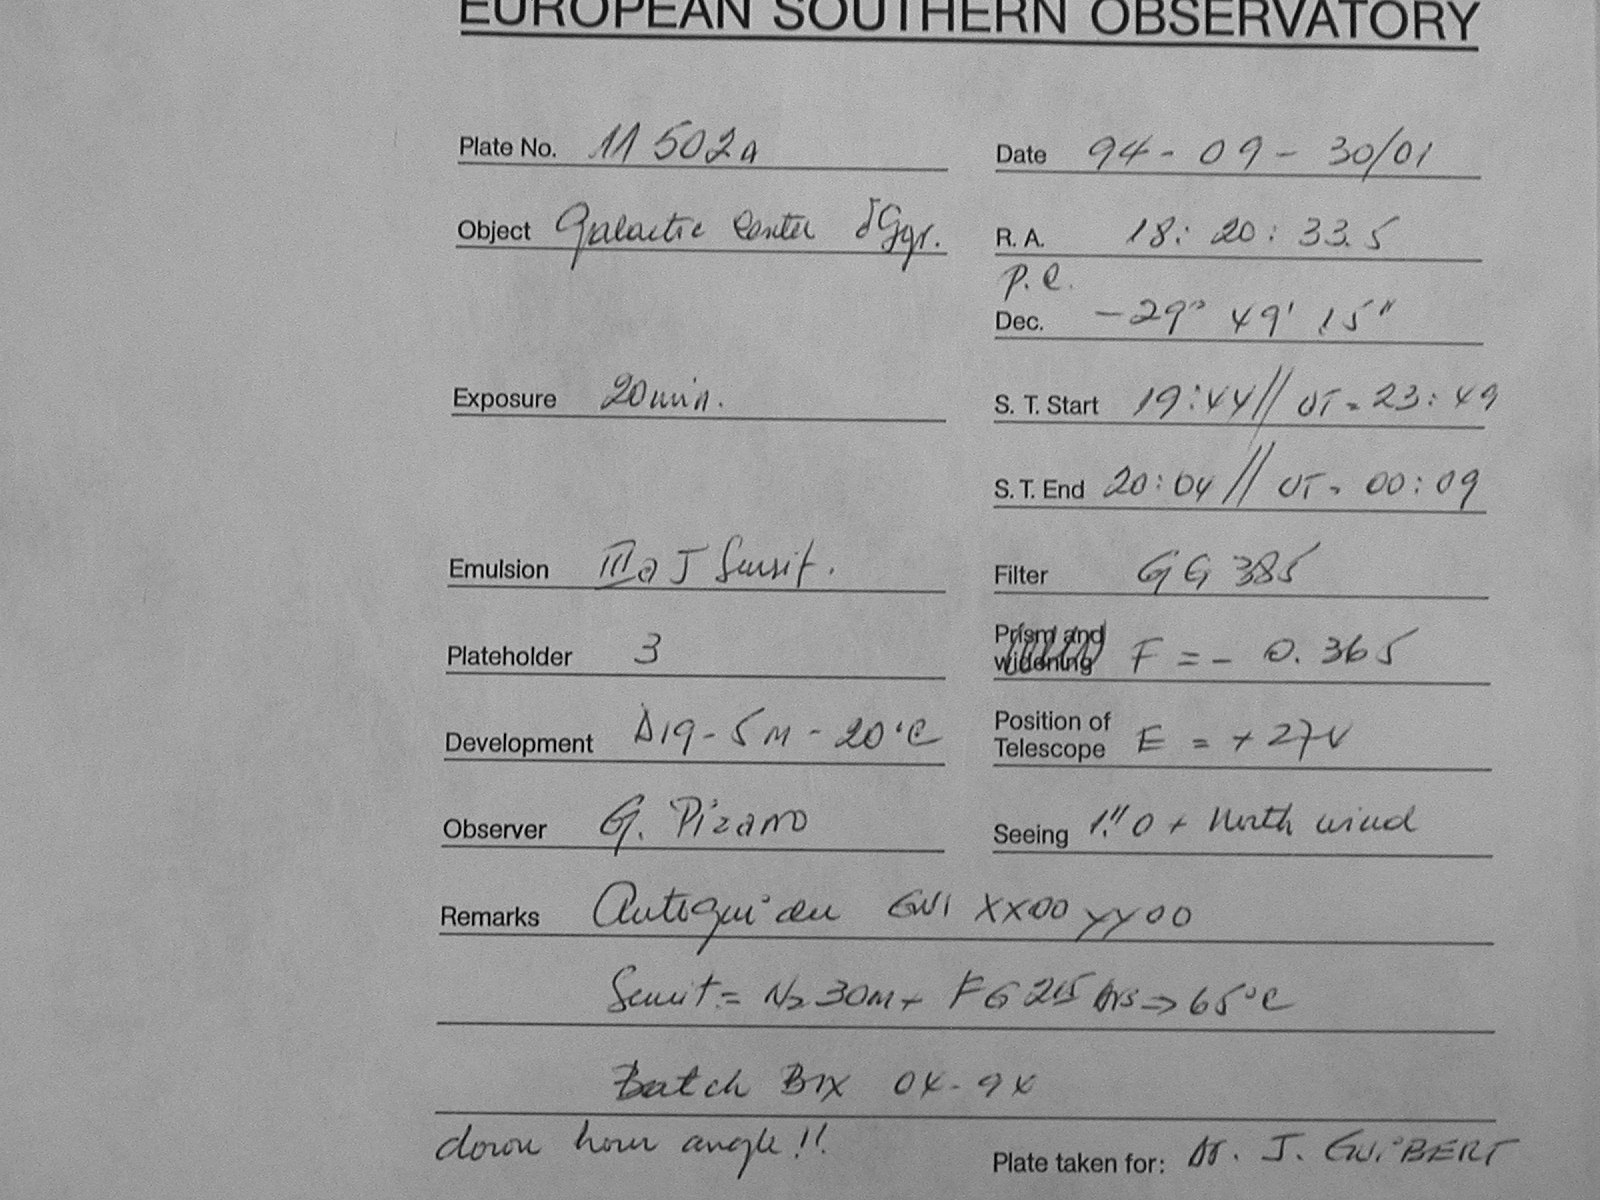 EUROPEAN SOUTHERN OBSERVATORY
Plate No. 11502a Date 94-09-30/01
Object Galactic Center R. A. 18: 20: 33.5
Dec. -29° 49' 15"
Exposure 20min. S. T. Start 19:44// UT- 23:49
S. T. End 20:04// UT- 00:09
Emulsion IIIa J Sensit. Filter GG 385
Plateholder 3 Prism and widening F = - 0.365
Development D19-5M-20°C Position of Telescope E = + 274
Observer G. Pizarro Seeing 1."0 + North wind
Remarks GUI XX00 YY00
Sensit = N2 30M + FG 215 hrs → 65°C
Batch Box 04-94
down hour angle!!
Plate taken for: Dr. J. GUIBERT